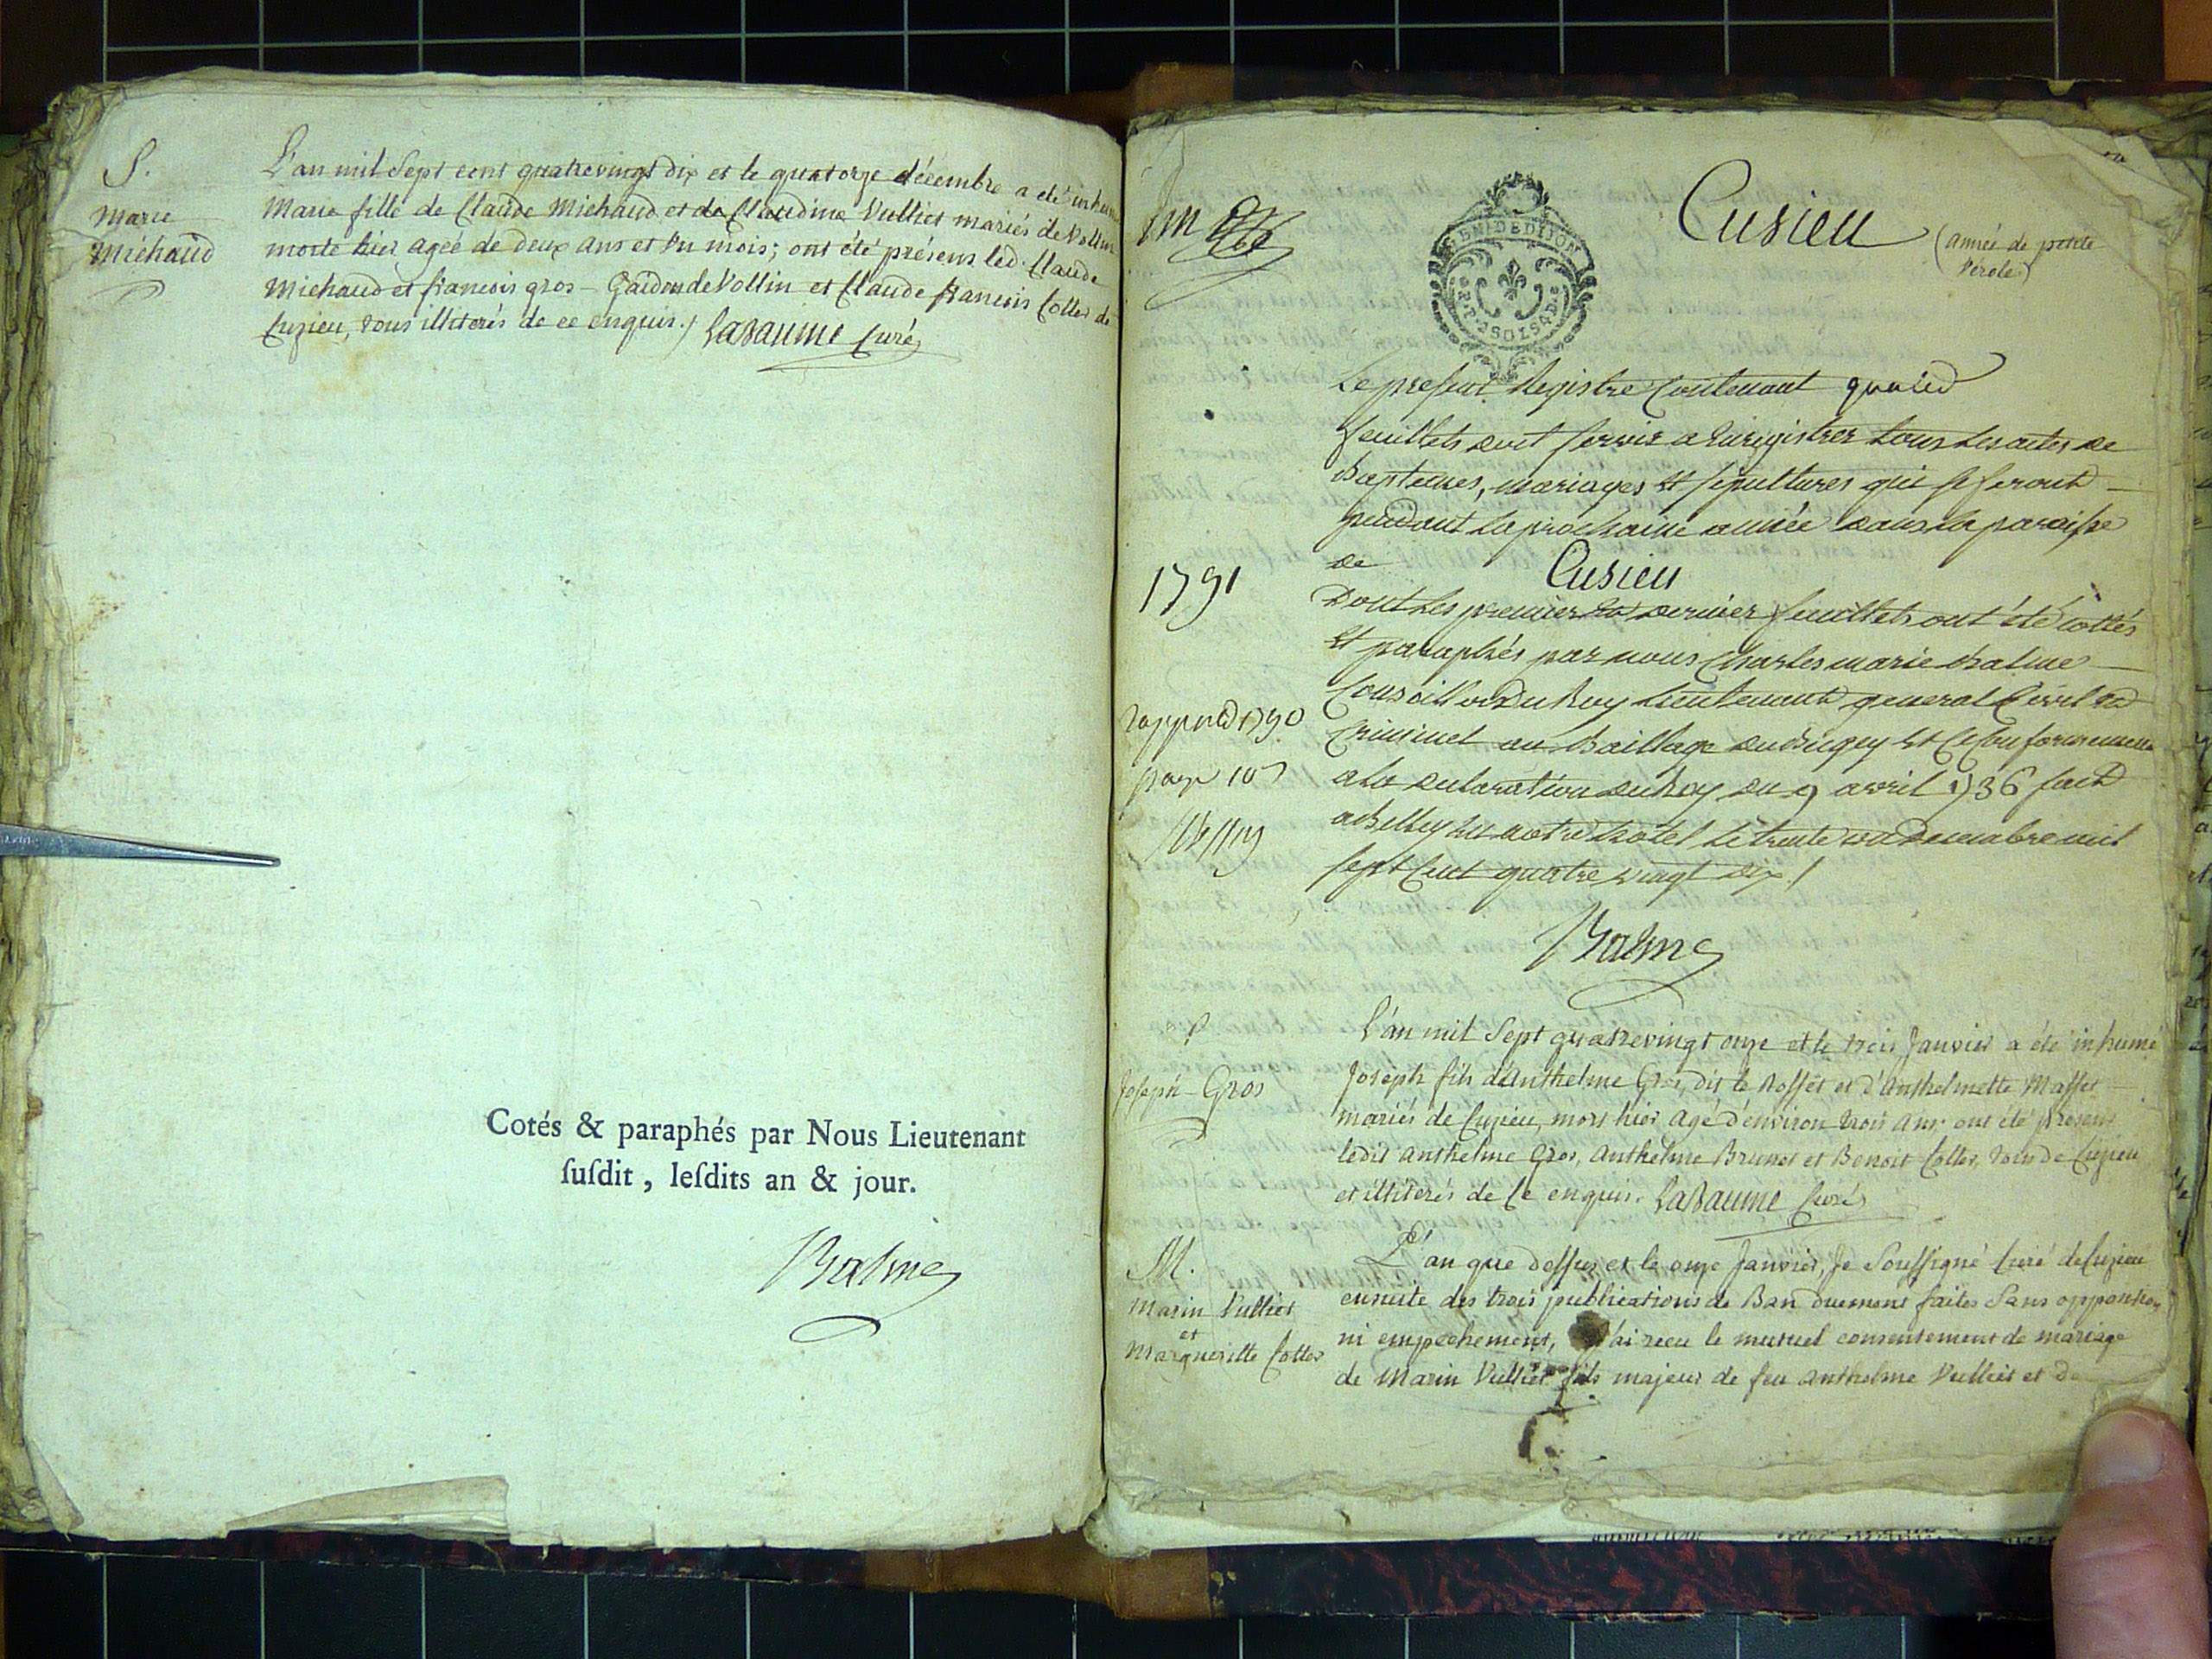 S.
Marie
Michaud
L'an mil Sept cent quatrevingt dix et le quatorze décembre a été inhum
Marie fille de Claude Michaud et de Claudine Vulliet mariés de Vollin
morte hier agée de deux ans et Un mois; ont été présens led. Claude
Michaud et francois gros - Gaidon de Vollin et Claude francois Collet de
Cuzieu, tous illiterés de ce enquis./ LaBaume Curé
Cotés & paraphés par Nous Lieutenant
ſuſdit, leſdits an & jour.
Balme
Cusieu
(année de petite
Vérole)
GEN. DE DIJON
Le present Registre Contenant
feuillets doit servir a Enregistrer tous les actes de
Baptemes, mariages Et sepultures qui se feront
pendant la prochaine année dans la paroisse
de Cusieu
1791
Dont les premier et dernier feuillets ont été cottés
Et paraphés par nous Charles marie Balme
Conseiller du Roy Lieutenant general Civil et
Criminel au Baillage du Bugey Et Ce Conformement
a la declaration du Roy du 9 avril 1736 fait
a Belley En notre hotel Le trente un Decembre mil
sept Cent quatre vingt dix /
1790
page 107
Balme
S
Joseph Gros
L'an mil Sept quatrevingt onze et le trois Janvier a été inhumé
Joseph fils d'Anthelme Gros, dit le Rosset et d'Anthelmette Masset
mariés de Cuzieu, mort hier agé d'environ trois ans; ont été présens
ledit Anthelme Gros, Anthelme Brunet et Benoit Collet, tous de Cuzieu
et illiterés de Ce enquis. LaBaume Curé
M.
Marin Vulliet
et
Marguerite Collet
L'an que dessus et le onze Janvier, Je Soussigné Curé de Cuzieu
ensuite des trois publications de Ban duement faites Sans opposition
ni empechement, J'ai recu le mutuel consentement de mariage
de Marin Vulliet fils majeur de feu Anthelme Vulliet et de